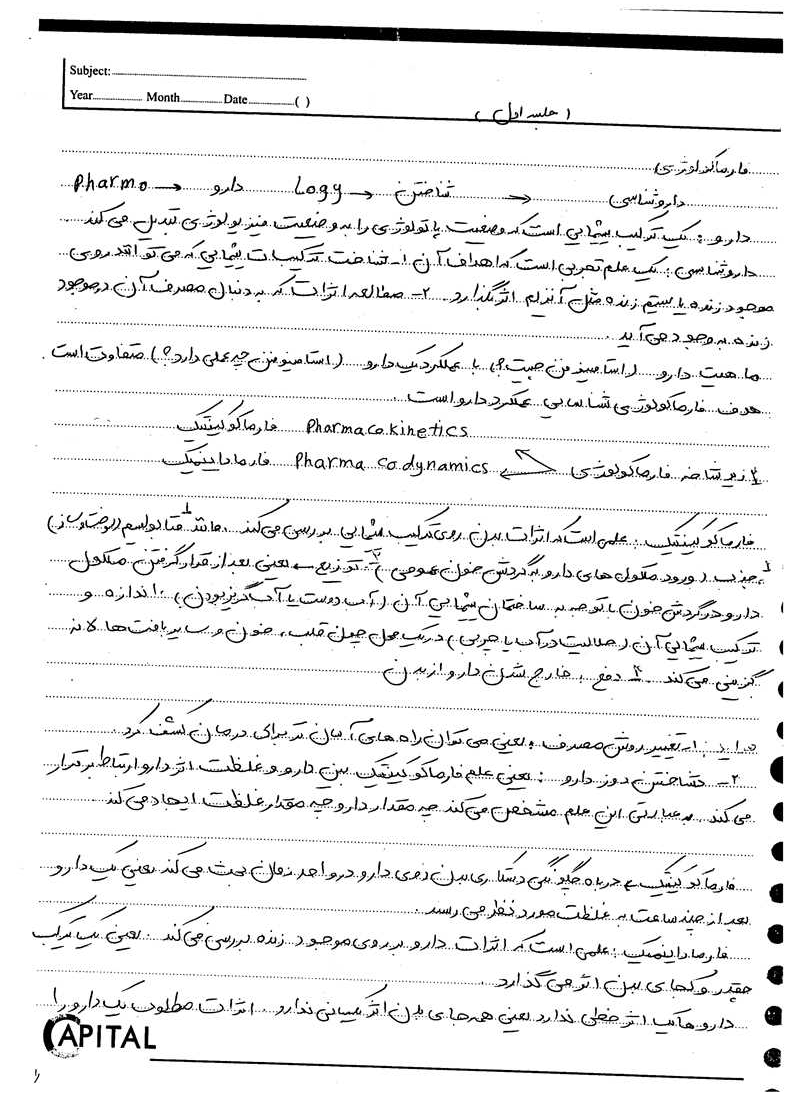 Subject:
Year Month Date ( )
( جلسه اول )
فارماکولوژی
داروشناسی → شناختن ← Logy دارو ← Pharmo
دارو : یک ترکیب شیمیایی است که وضعیت پاتولوژی را به وضعیت فیزیولوژی تبدیل می کند
داروشناسی : یک علم تجربی است که اهداف آن ۱- شناخت ترکیبات شیمیایی که می توانند روی
موجود زنده یا سیستم زنده مثل آنزیم اثر بگذارد ۲- مطالعه اثرات که به دنبال مصرف آن در موجود
زنده به وجود می آید .
ماهیت دارو ( استامینوفن چیست ؟ ) با عملکرد یک دارو ( استامینوفن چه عملی دارد ؟ ) متفاوت است
هدف فارماکولوژی شناسایی عملکرد دارو است .
Pharmacokinetics فارماکوکینتیک
۲ زیر شاخه فارماکولوژی Pharmacodynamics فارماداینمیک
فارماکوکینتیک : علمی است که اثرات بدن روی ترکیب شیمیایی بررسی می کند . مانند ۱ متابولیسم ( سوخت و ساز )
۲ جذب ( ورود مکول های دارو به گردش خون عمومی ) ۳ توزیع ← یعنی بعد از قرار گرفتن مکلول
دارو در گردش خون با توجه به ساختمان شیمیایی آن ( آب دوست یا آب گریز بودن ) ، اندازه و
ترکیب شیمیایی آن ( حلالیت در آب یا چربی ) در یک محل چون قلب ، خون و سایر بافت ها لانه
گزینی می کند ۴ دفع ، خارج شدن دارو از بدن
فواید : ۱- تغییر روش مصرف : یعنی می توان راه های آسان تر برای درمان کشف کرد .
۲- شناختن دوز دارو : یعنی علم فارماکوکینتیک بین دارو و غلظت اثر دارو ارتباط برقرار
می کند . به عبارتی این علم مشخص می کند چه مقدار دارو چه مقدار غلظت ایجاد می کند
فارماکوکینتیک ← درباه چگونگی دستکاری بدن روی دارو در واحد زمان بحث می کند یعنی یک دارو
بعد از چند ساعت به غلظت مورد نظر می رسد .
فارماداینمیک : علمی است که اثرات دارو بر روی موجود زنده بررسی می کند . یعنی یک ترکیب
چقدر و کجای بدن اثر می گذارد .
دارو هایک اثر خطی ندارد یعنی همه جای بدن اثر یکسانی ندارو . اثرات مطلوب یک دارو را
CAPITAL
۱